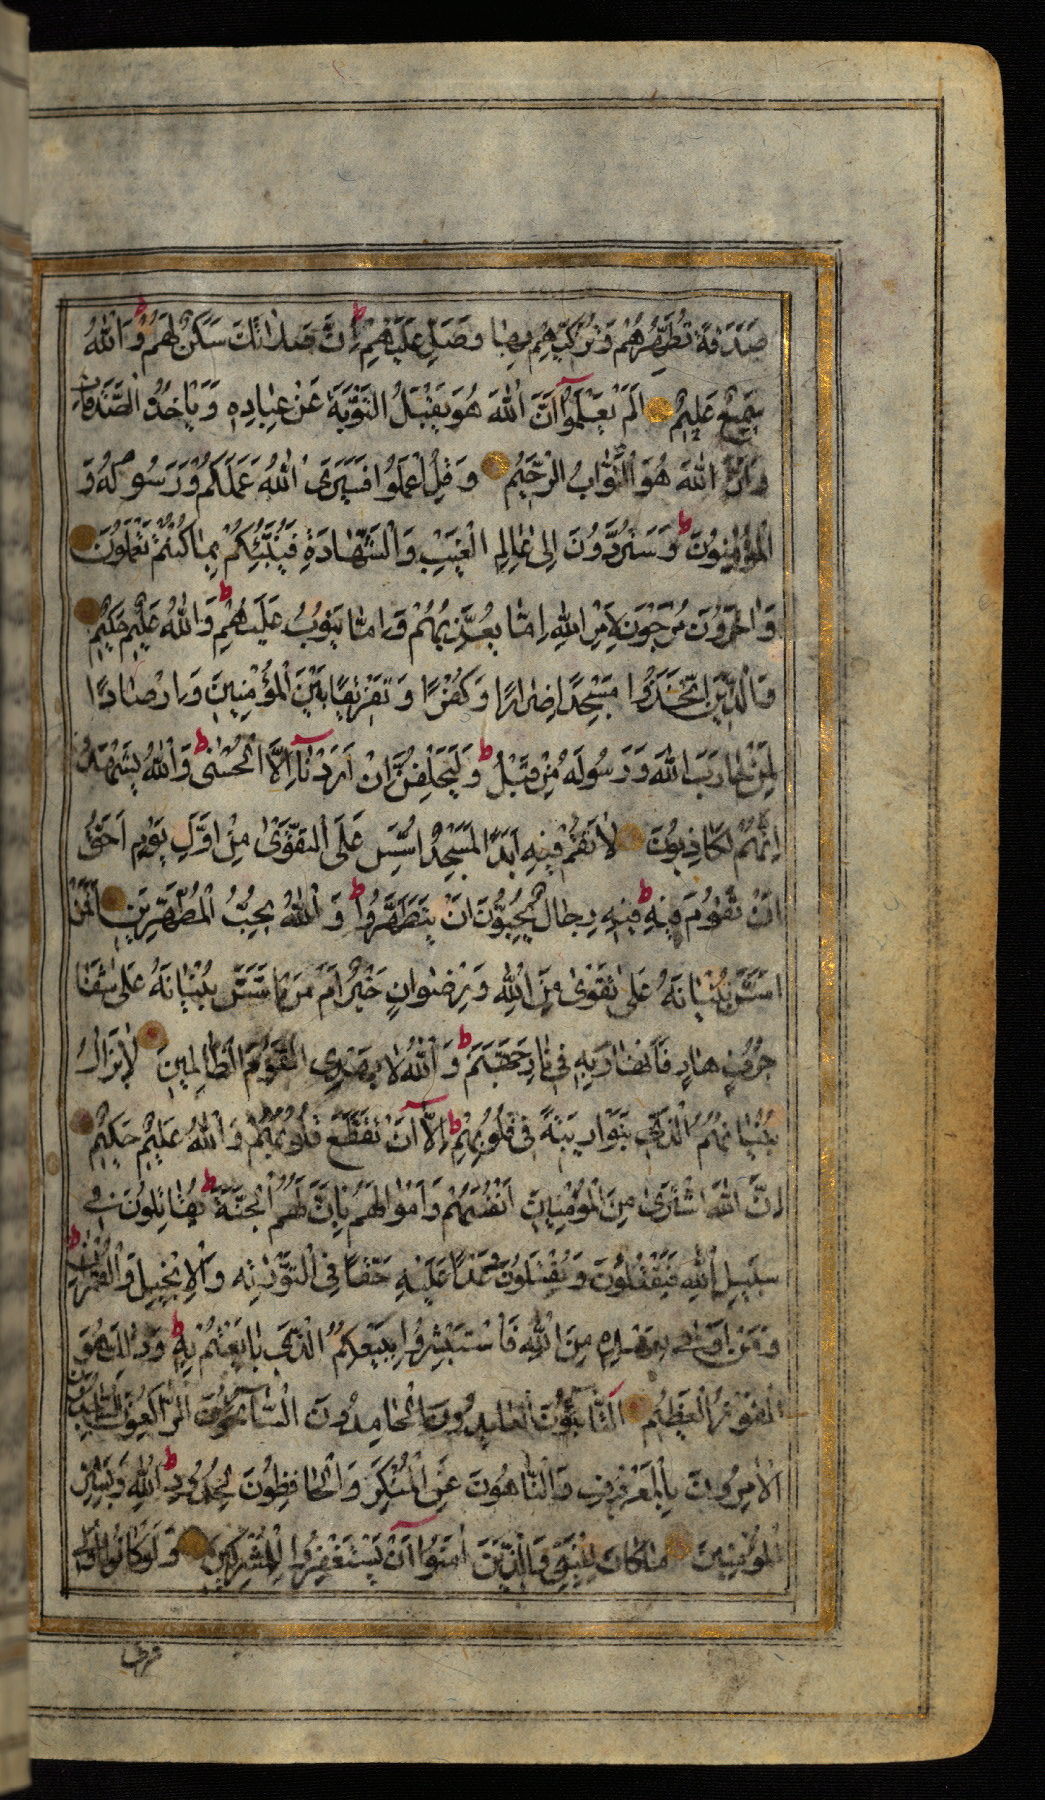 صَدَقَةً تُطَهِّرُهُمْ وَتُزَكِّيهِمْ بِهَا وَصَلِّ عَلَيْهِمْ ط إِنَّ صَلَاتَكَ سَكَنٌ لَهُمْ ط وَاللّٰهُ
سَمِيعٌ عَلِيمٌ اَلَمْ يَعْلَمُوا أَنَّ اللّٰهَ هُوَ يَقْبَلُ التَّوْبَةَ عَنْ عِبَادِهِ وَيَأْخُذُ الصَّدَقَاتِ
وَأَنَّ اللّٰهَ هُوَ التَّوَّابُ الرَّحِيمُ وَقُلِ اعْمَلُوا فَسَيَرَى اللّٰهُ عَمَلَكُمْ وَرَسُولُهُ وَ
الْمُؤْمِنُونَ ط وَسَتُرَدُّونَ إِلَى عَالِمِ الْغَيْبِ وَالشَّهَادَةِ فَيُنَبِّئُكُمْ بِمَا كُنْتُمْ تَعْمَلُونَ
وَاٰخَرُونَ مُرْجَوْنَ لِأَمْرِ اللّٰهِ اِمَّا يُعَذِّبُهُمْ وَاِمَّا يَتُوبُ عَلَيْهِمْ ط وَاللّٰهُ عَلِيمٌ حَكِيمٌ
وَالَّذِينَ اتَّخَذُوا مَسْجِدًا ضِرَارًا وَكُفْرًا وَتَفْرِيقًا بَيْنَ الْمُؤْمِنِينَ وَاِرْصَادًا
لِمَنْ حَارَبَ اللّٰهَ وَرَسُولَهُ مِنْ قَبْلُ ط وَلَيَحْلِفُنَّ اِنْ اَرَدْنَا اِلَّا الْحُسْنٰى ط وَاللّٰهُ يَشْهَدُ
اِنَّهُمْ لَكَاذِبُونَ لَا تَقُمْ فِيهِ اَبَدًا لَمَسْجِدٌ اُسِّسَ عَلَى التَّقْوٰى مِنْ اَوَّلِ يَوْمٍ اَحَقُّ
اَنْ تَقُومَ فِيهِ ط فِيهِ رِجَالٌ يُحِبُّونَ اَنْ يَتَطَهَّرُوا ط وَاللّٰهُ يُحِبُّ الْمُطَّهِّرِينَ اَفَمَنْ
اَسَّسَ بُنْيَانَهُ عَلٰى تَقْوٰى مِنَ اللّٰهِ وَرِضْوَانٍ خَيْرٌ اَمْ مَنْ اَسَّسَ بُنْيَانَهُ عَلٰى شَفَا
جُرُفٍ هَارٍ فَانْهَارَ بِهِ فِي نَارِ جَهَنَّمَ ط وَاللّٰهُ لَا يَهْدِي الْقَوْمَ الظَّالِمِينَ لَا يَزَالُ
بُنْيَانُهُمُ الَّذِي بَنَوْا رِيبَةً فِي قُلُوبِهِمْ ط اِلَّا اَنْ تَقَطَّعَ قُلُوبُهُمْ ط وَاللّٰهُ عَلِيمٌ حَكِيمٌ
اِنَّ اللّٰهَ اشْتَرٰى مِنَ الْمُؤْمِنِينَ اَنْفُسَهُمْ وَاَمْوَالَهُمْ بِاَنَّ لَهُمُ الْجَنَّةَ ط يُقَاتِلُونَ فِي
سَبِيلِ اللّٰهِ فَيَقْتُلُونَ وَيُقْتَلُونَ وَعْدًا عَلَيْهِ حَقًّا فِي التَّوْرٰيةِ وَالْاِنْجِيلِ وَالْقُرْاٰنِ ط
وَمَنْ اَوْفٰى بِعَهْدِهِ مِنَ اللّٰهِ فَاسْتَبْشِرُوا بِبَيْعِكُمُ الَّذِي بَايَعْتُمْ بِهِ ط وَذٰلِكَ هُوَ
الْفَوْزُ الْعَظِيمُ اَلتَّائِبُونَ الْعَابِدُونَ الْحَامِدُونَ السَّائِحُونَ الرَّاكِعُونَ السَّاجِدُونَ
الْاٰمِرُونَ بِالْمَعْرُوفِ وَالنَّاهُونَ عَنِ الْمُنْكَرِ وَالْحَافِظُونَ لِحُدُودِ اللّٰهِ ط وَبَشِّرِ
الْمُؤْمِنِينَ مَا كَانَ لِلنَّبِيِّ وَالَّذِينَ اٰمَنُوا اَنْ يَسْتَغْفِرُوا لِلْمُشْرِكِينَ وَلَوْ كَانُوا اُولِي
قربى